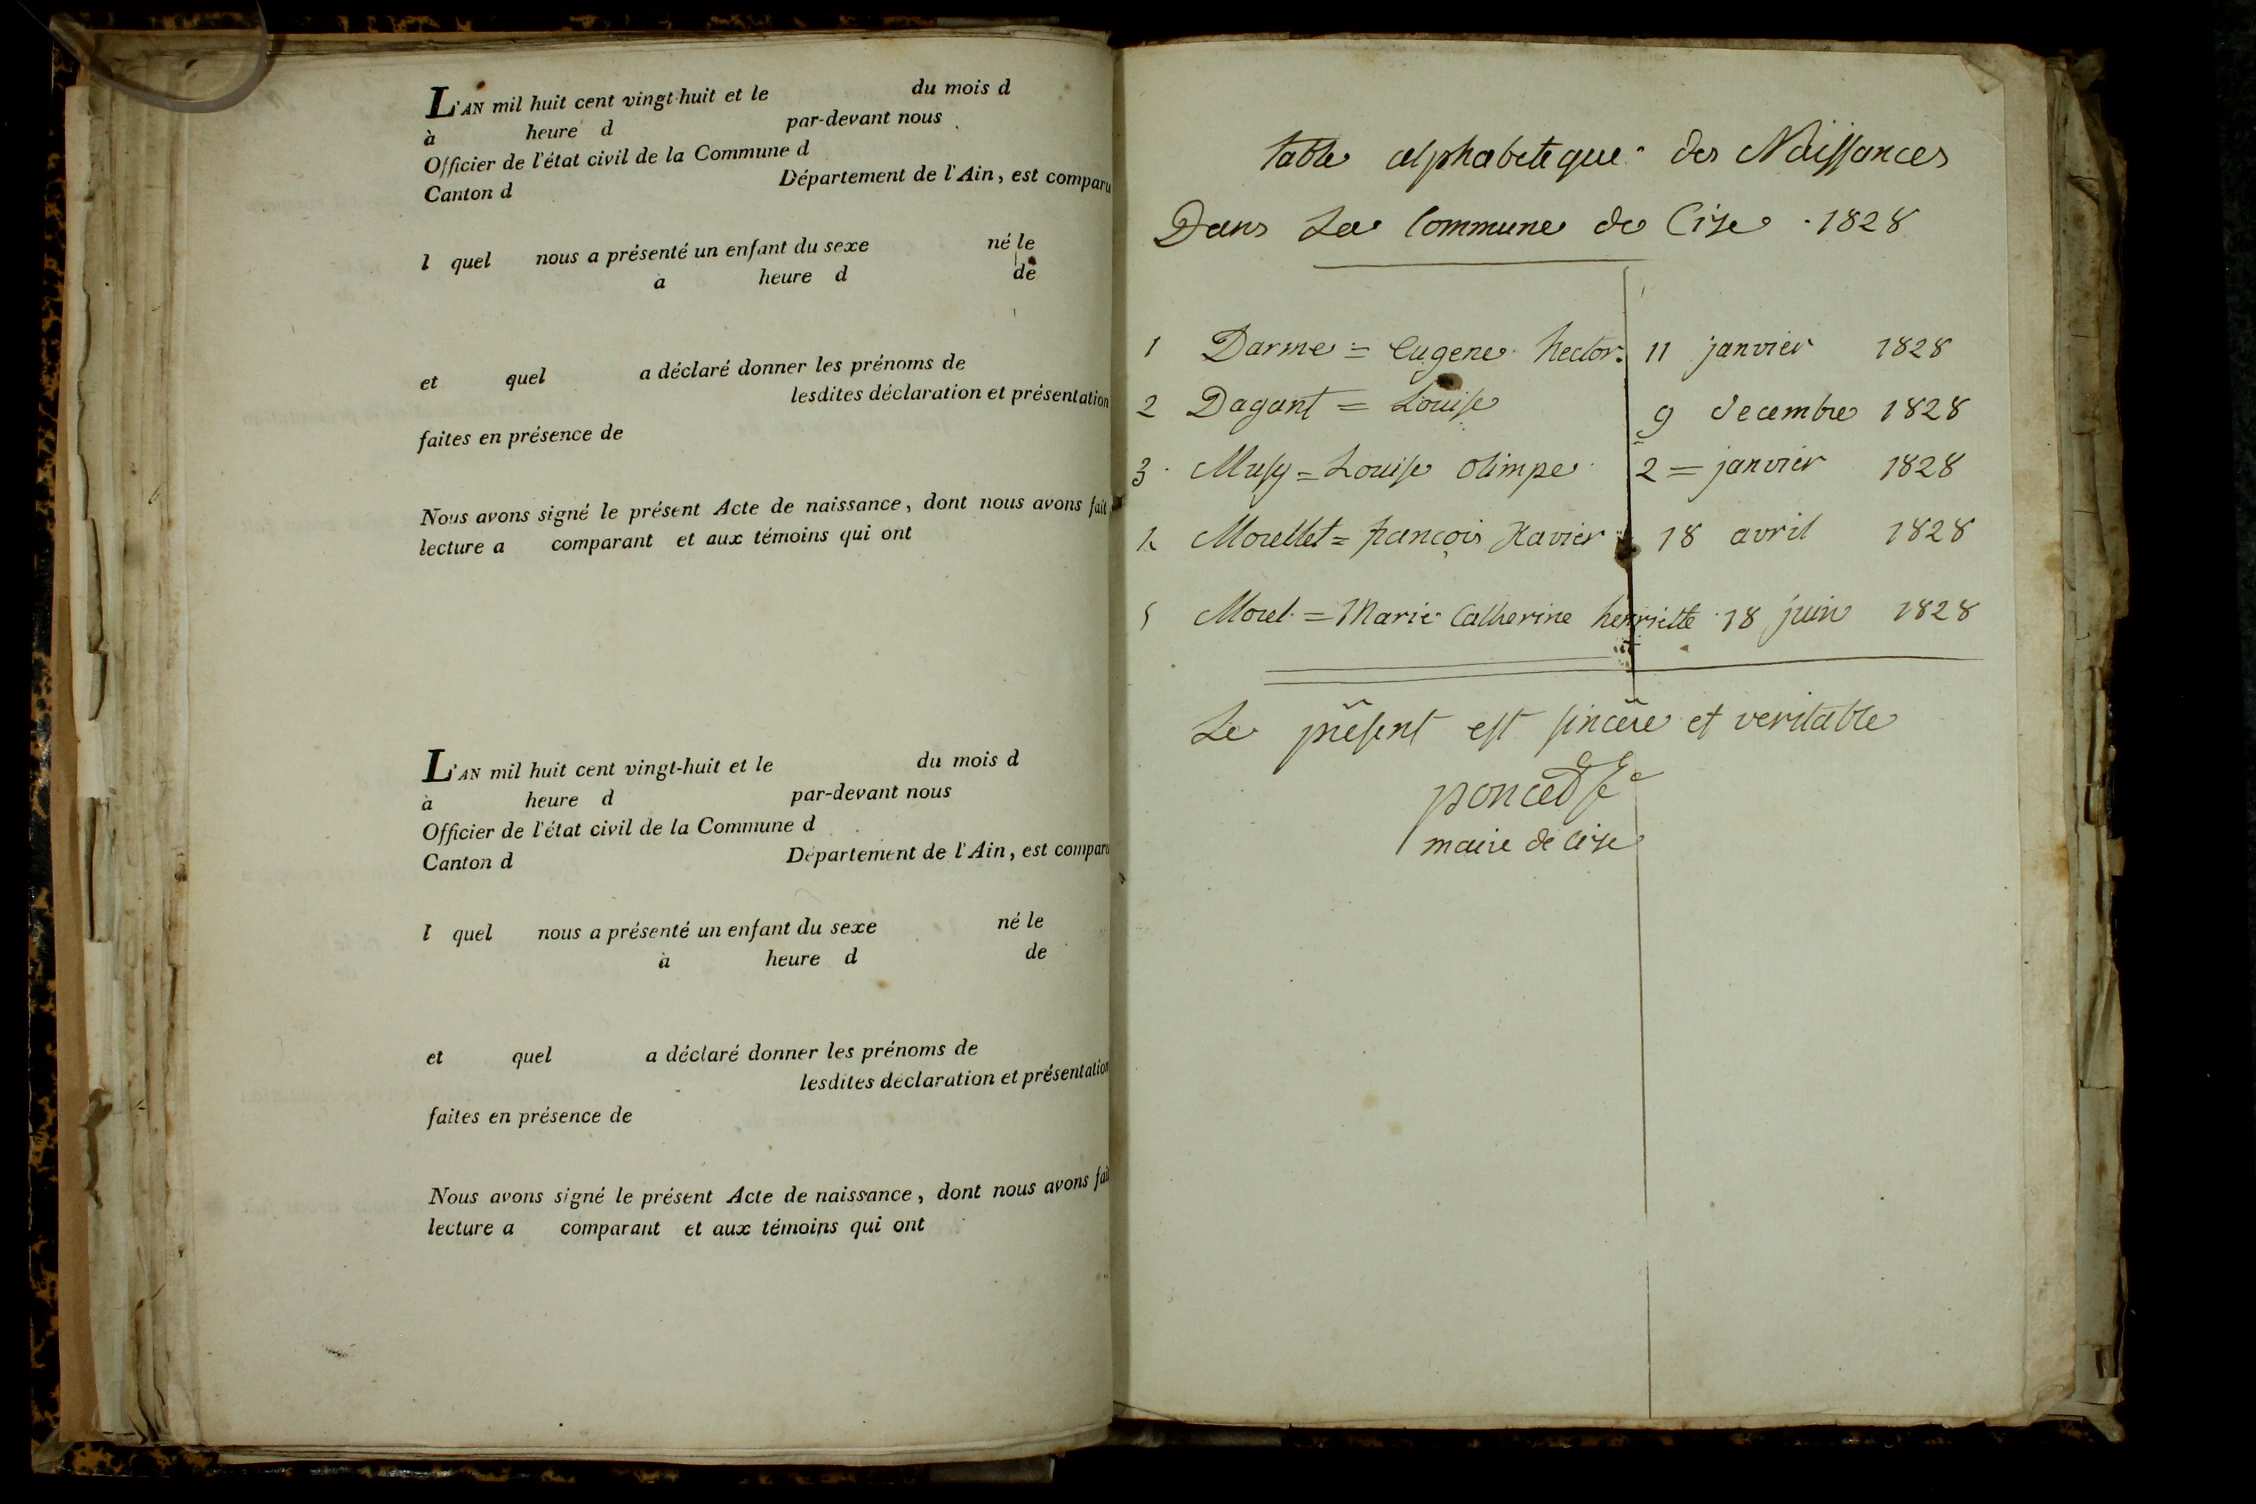 L'AN mil huit cent vingt-huit et le du mois d
à heure d par-devant nous
Officier de l'état civil de la Commune d
Canton d Département de l'Ain, est comparu
l quel nous a présenté un enfant du sexe né le
à heure d de
et quel a déclaré donner les prénoms de
lesdites déclaration et présentation
faites en présence de
Nous avons signé le présent Acte de naissance, dont nous avons fait
lecture a comparant et aux témoins qui ont
L'AN mil huit cent vingt-huit et le du mois d
à heure d par-devant nous
Officier de l'état civil de la Commune d
Canton d Département de l'Ain, est comparu
l quel nous a présenté un enfant du sexe né le
à heure d de
et quel a déclaré donner les prénoms de
lesdites déclaration et présentation
faites en présence de
Nous avons signé le présent Acte de naissance, dont nous avons fait
lecture a comparant et aux témoins qui ont
table alphabetique des Naissances
Dans La Commune de Cize 1828
1 Darme = Eugene hector. 11 janvier 1828
2 Dagant = Louise 9 decembre 1828
3 Musy = Louise Olimpe 2 = janvier 1828
4 Morellet = françois Xavier 18 avril 1828
5 Morel = Marie Catherine henriette 18 juin 1828
Le présent est sincère et veritable
poncet
maire de Cize